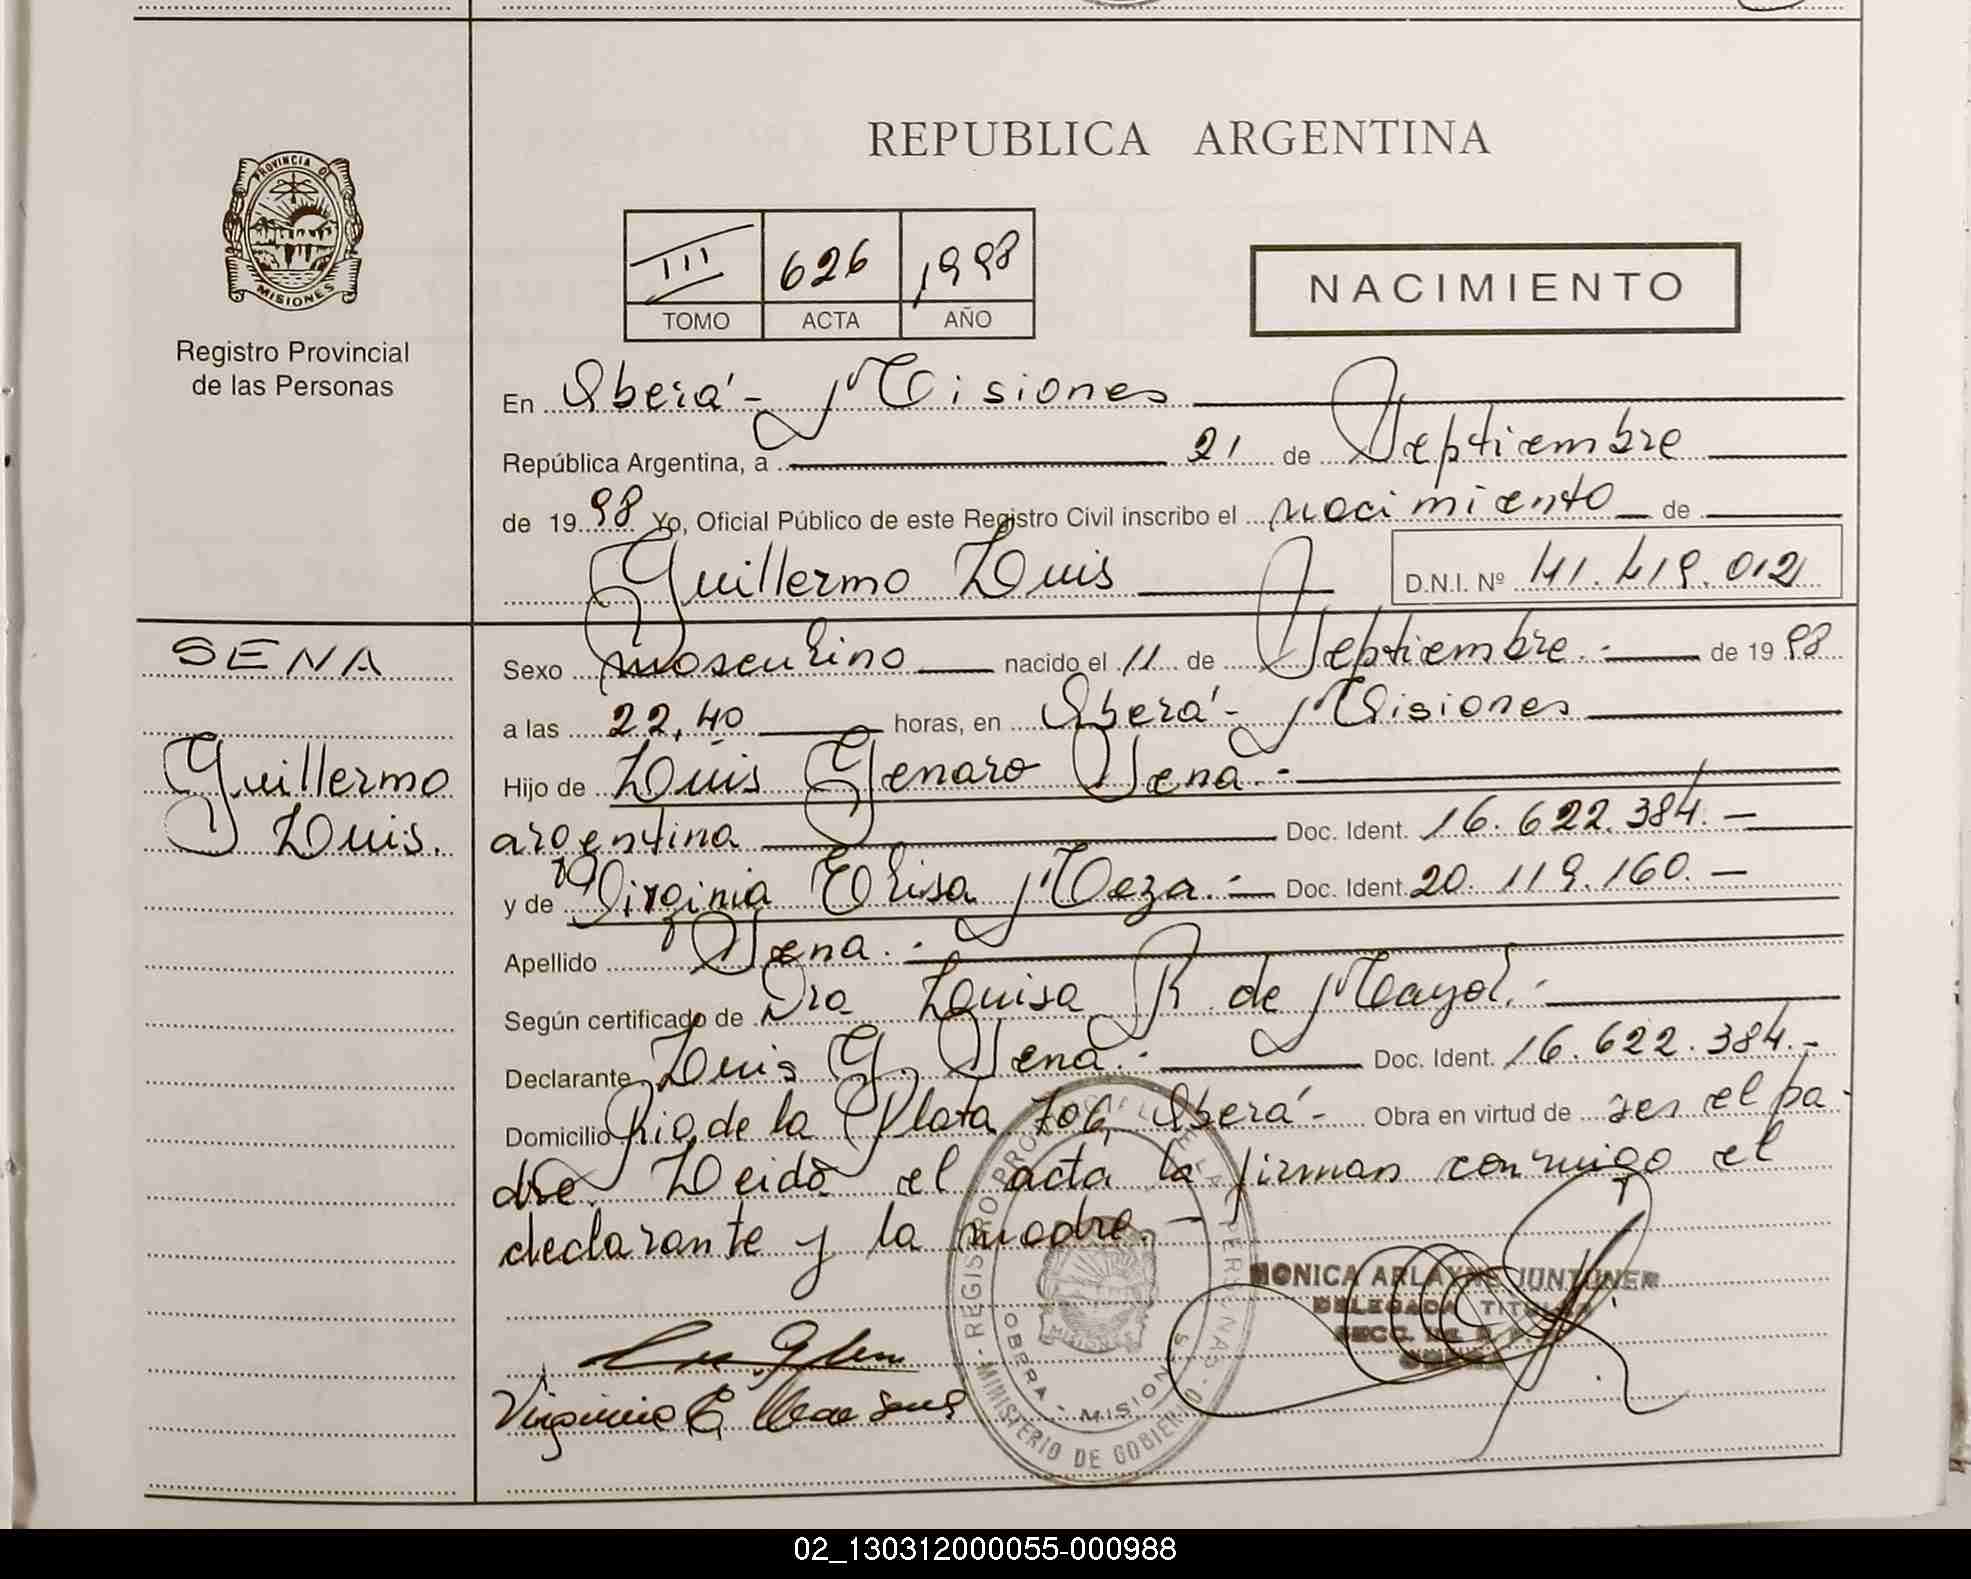 PROVINCIA DE
MISIONES
Registro Provincial
de las Personas
REPUBLICA ARGENTINA
III 626 1998
TOMO ACTA AÑO
NACIMIENTO
En Oberá - Misiones
República Argentina, a 21 de Septiembre
de 1998 Yo, Oficial Público de este Registro Civil inscribo el nacimiento de
Guillermo Luis D.N.I. Nº 41.419.012
SENA
Guillermo
Luis.
Sexo masculino nacido el 11 de Septiembre.- de 1998
a las 22,40 horas, en Oberá - Misiones
Hijo de Luis Genaro Sena.-
argentina Doc. Ident. 16.622.384.-
y de Virginia Elisa Meza.- Doc. Ident. 20.119.160.-
Apellido Sena.-
Según certificado de Dra Luisa R de Mayol.-
Declarante Luis G. Sena.- Doc. Ident. 16.622.384.-
Domicilio Rio de la Plata 706, Oberá - Obra en virtud de ser el pa-
dre. Leida el acta la firman conmigo el
declarante y la madre.-
REGISTRO PROVINCIAL DE LAS PERSONAS
MINISTERIO DE GOBIERNO
OBERA - MISIONES
MONICA ARLAYNE
DELEGADA TITULAR
Virginia E.
02_130312000055-000988